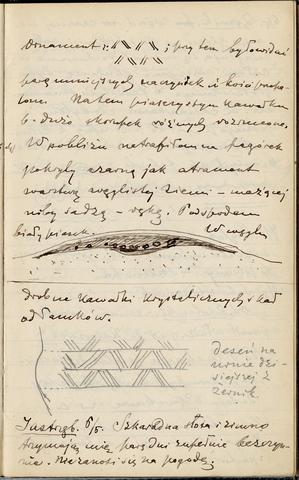 Ornament: ; przytem był widać
parę mniejszych naczyniek i kości
. Na tem piaszczystym kawałku
b. dużo skorupek różnych rozrzucone.
W pobliżu natrafiłem na pagórek
pokryty czarną jak atrament
warstwą węglistej ziemi – mażącej
niby sadzą – ręką. Pod spodem
biały piasek. W węglu
drobne kawałki krystalicznych skał
odłamków.
deseń na
urnie dzi-
siejszej z
Żernik.
Jastrzęb. 6/5. Szkaradna słota i zimno
trzymają mię parę dni zupełnie bezczyn-
nie. Nie zanosi się na pogodę.